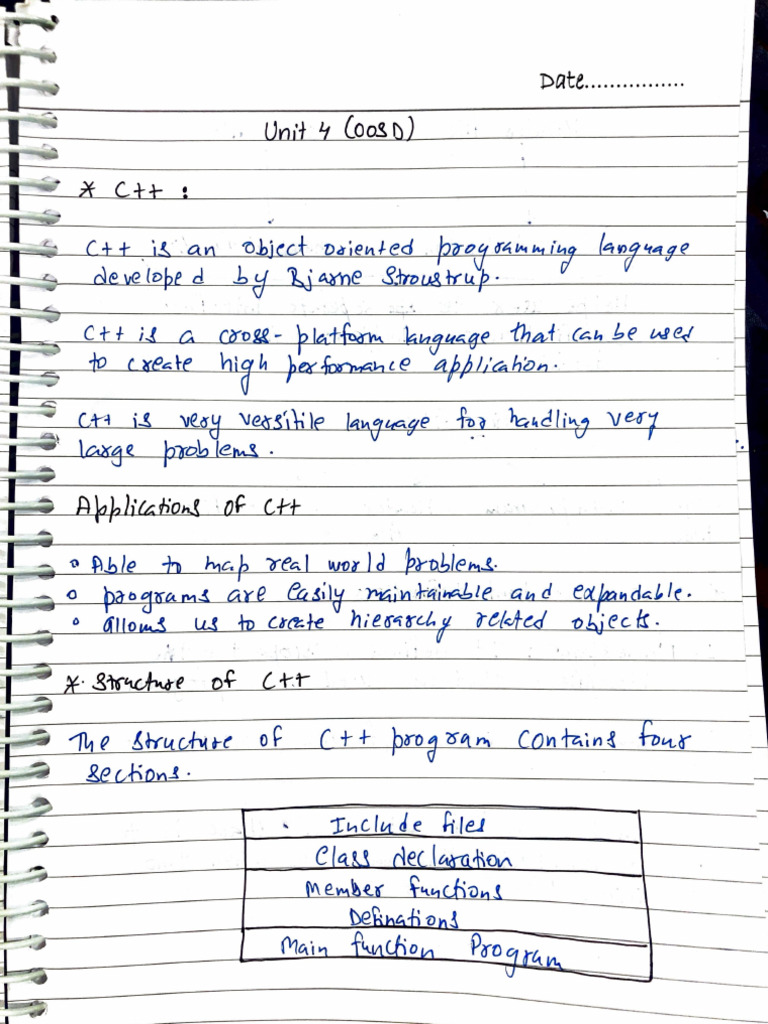 Date................
Unit 4 (OOSD)
* C++ :
C++ is an object oriented programming language
developed by Bjarne Stroustrup.
C++ is a cross-platform language that can be used
to create high performance application.
C++ is very versitile language for handling very
large problems.
Applications of C++
• Able to map real world problems.
• programs are easily maintainable and expandable.
• allows us to create hierarchy related objects.
*. Structure of C++
The structure of C++ program contains four
sections.
Include files
Class declaration
Member functions
Definations
Main function Program